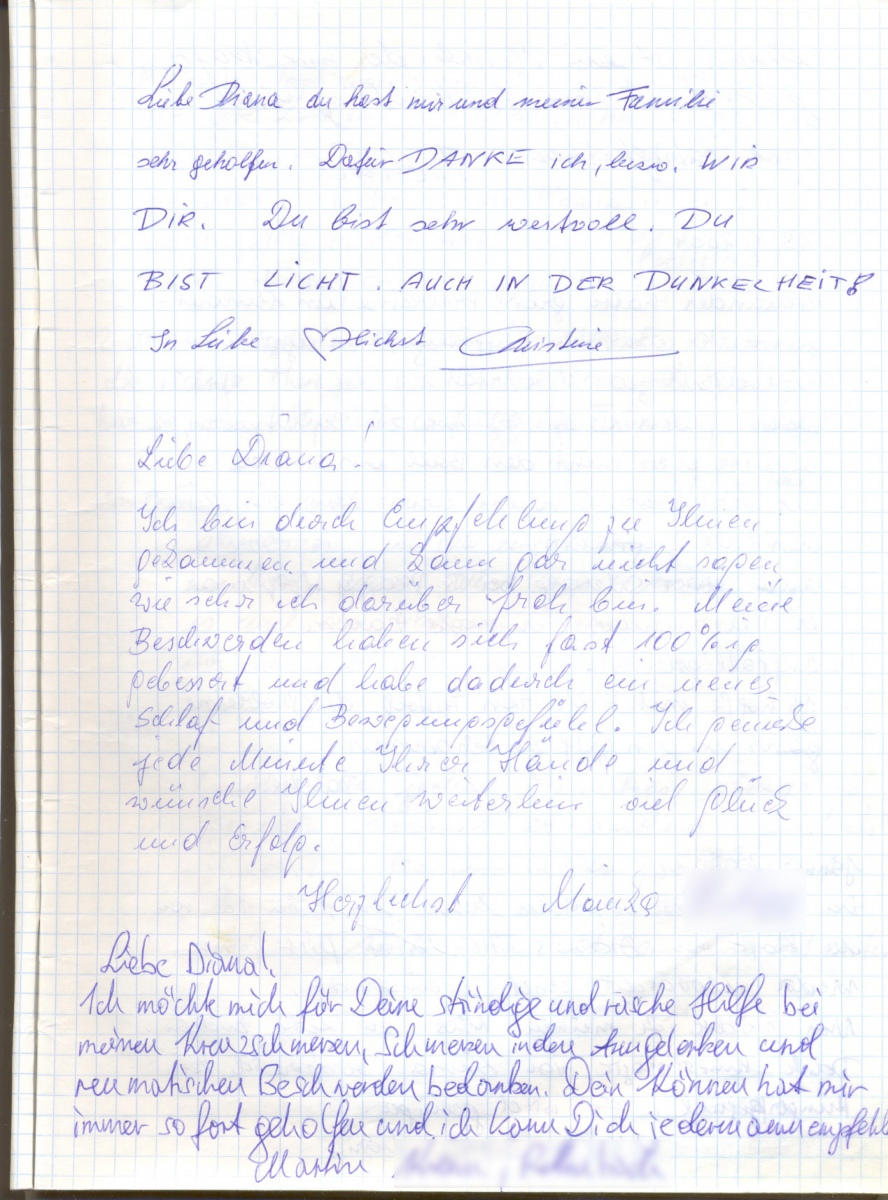 Liebe Diana du hast mir und meiner Familie
sehr geholfen. Dafür DANKE ich, bzw. WIR
DIR. Du bist sehr wertvoll. DU
BIST LICHT. AUCH IN DER DUNKELHEIT!
In Liebe ♡lichst Christine
Liebe Diana!
Ich bin durch Empfehlung zu Ihnen
gekommen und kann gar nicht sagen
wie sehr ich darüber froh bin. Meine
Beschwerden haben sich fast 100%ig
gebessert und habe dadurch ein neues
Schlaf und Bewegungsgefühl. Ich genieße
jede Minute Ihrer Hände und
wünsche Ihnen weiterhin viel Glück
und Erfolg.
Herzlichst
Liebe Diana!
Ich möchte mich für Deine ständige und rasche Hilfe bei
meinen Kreuzschmerzen, Schmerzen in den
und
reumatischen Beschwerden bedanken. Dein Können hat mir
immer sofort geholfen und ich kann Dich jedermann empfehl
Martin